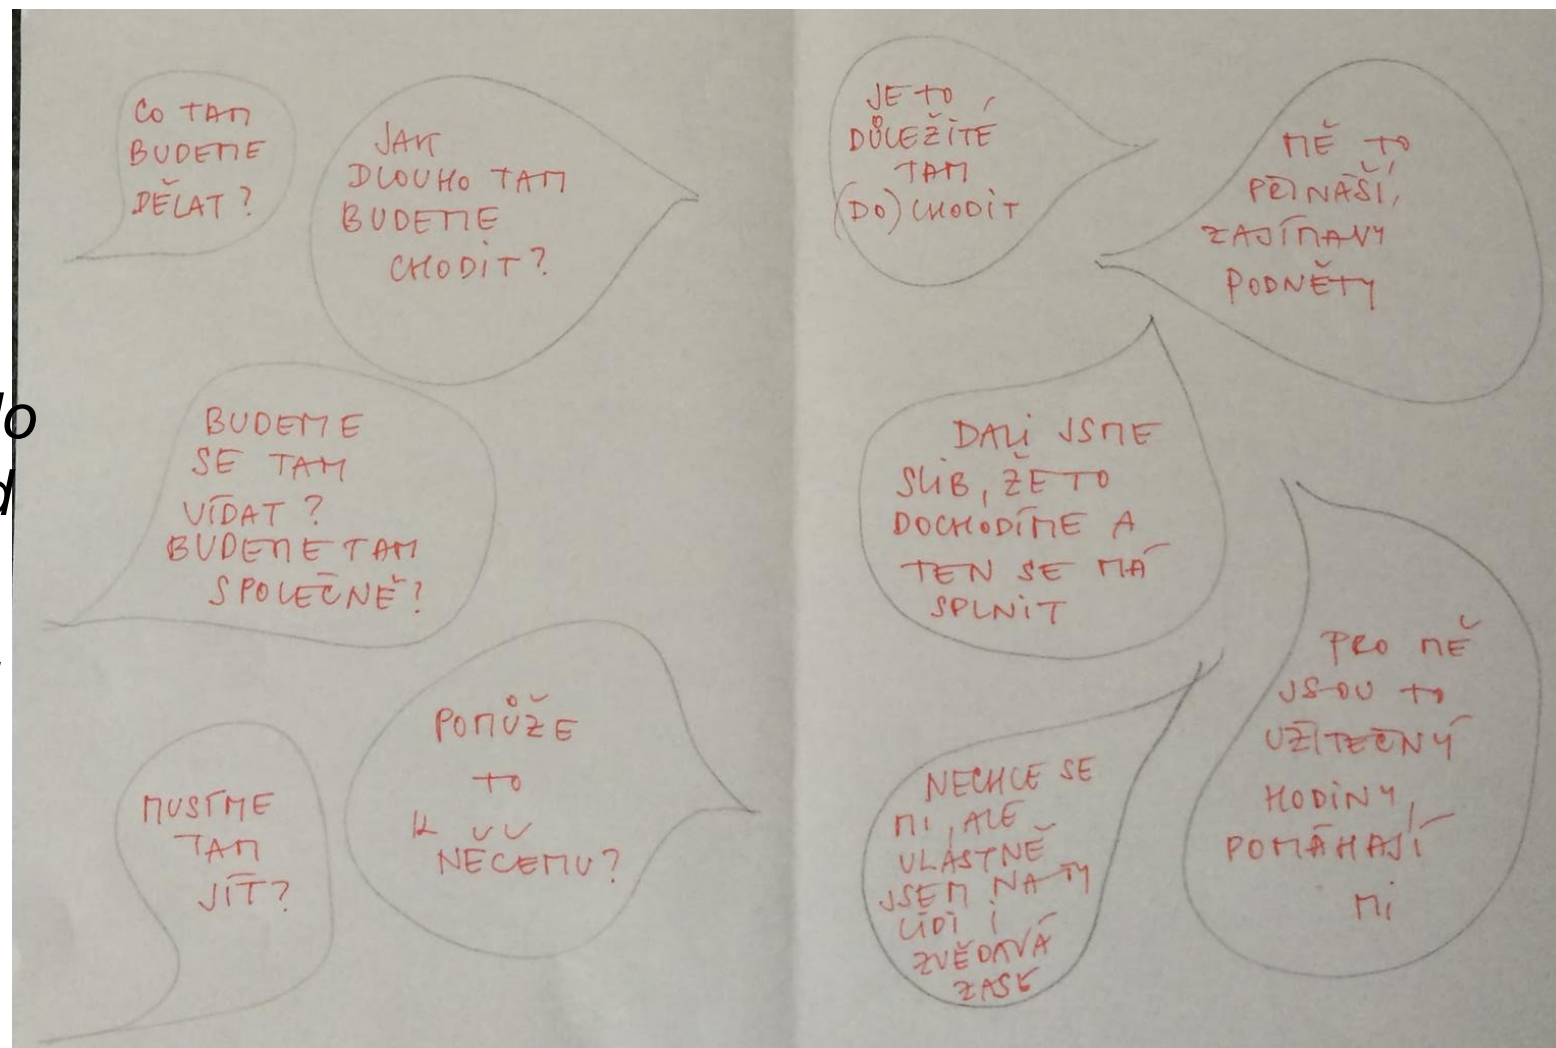 CO TAM
BUDEME
DĚLAT?
JAK
DLOUHO TAM
BUDEME
CHODIT?
BUDEME
SE TAM
VÍDAT?
BUDEME TAM
SPOLEČNĚ?
MUSÍME
TAM
JÍT?
POMŮŽE
TO
K
NĚČEMU?
JE TO
DŮLEŽITÉ
TAM
(DO)CHODIT
MĚ TO
PŘINÁŠÍ,
ZAJÍMAVÝ
PODNĚTY
DALI JSME
SLIB, ŽE TO
DOCHODÍME A
TEN SE MÁ
SPLNIT
NECHCE SE
MI, ALE
VLASTNĚ
JSEM NA TY
LIDI I
ZVĚDAVÁ
ZASE
PRO MĚ
JSOU TO
UŽITEČNÝ
HODINY,
POMÁHAJÍ
MI